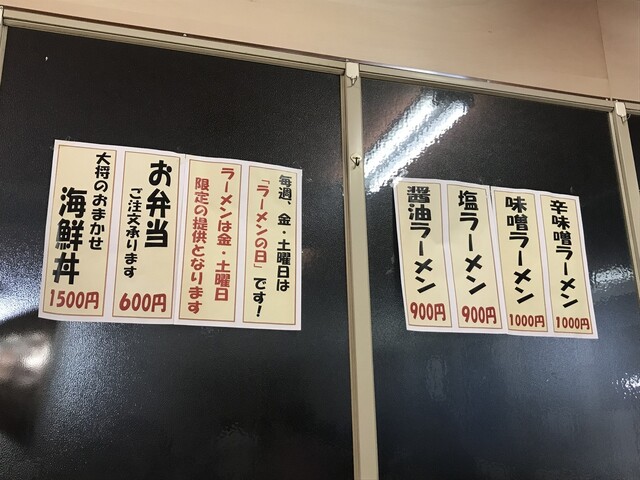 毎週、金・土曜日は
「ラーメンの日」です!
ラーメンは金・土曜日
限定の提供となります
お弁当
ご注文承ります
600円
大将のおまかせ
海鮮丼
1500円
辛味噌ラーメン
1000円
味噌ラーメン
1000円
塩ラーメン
900円
醤油ラーメン
900円